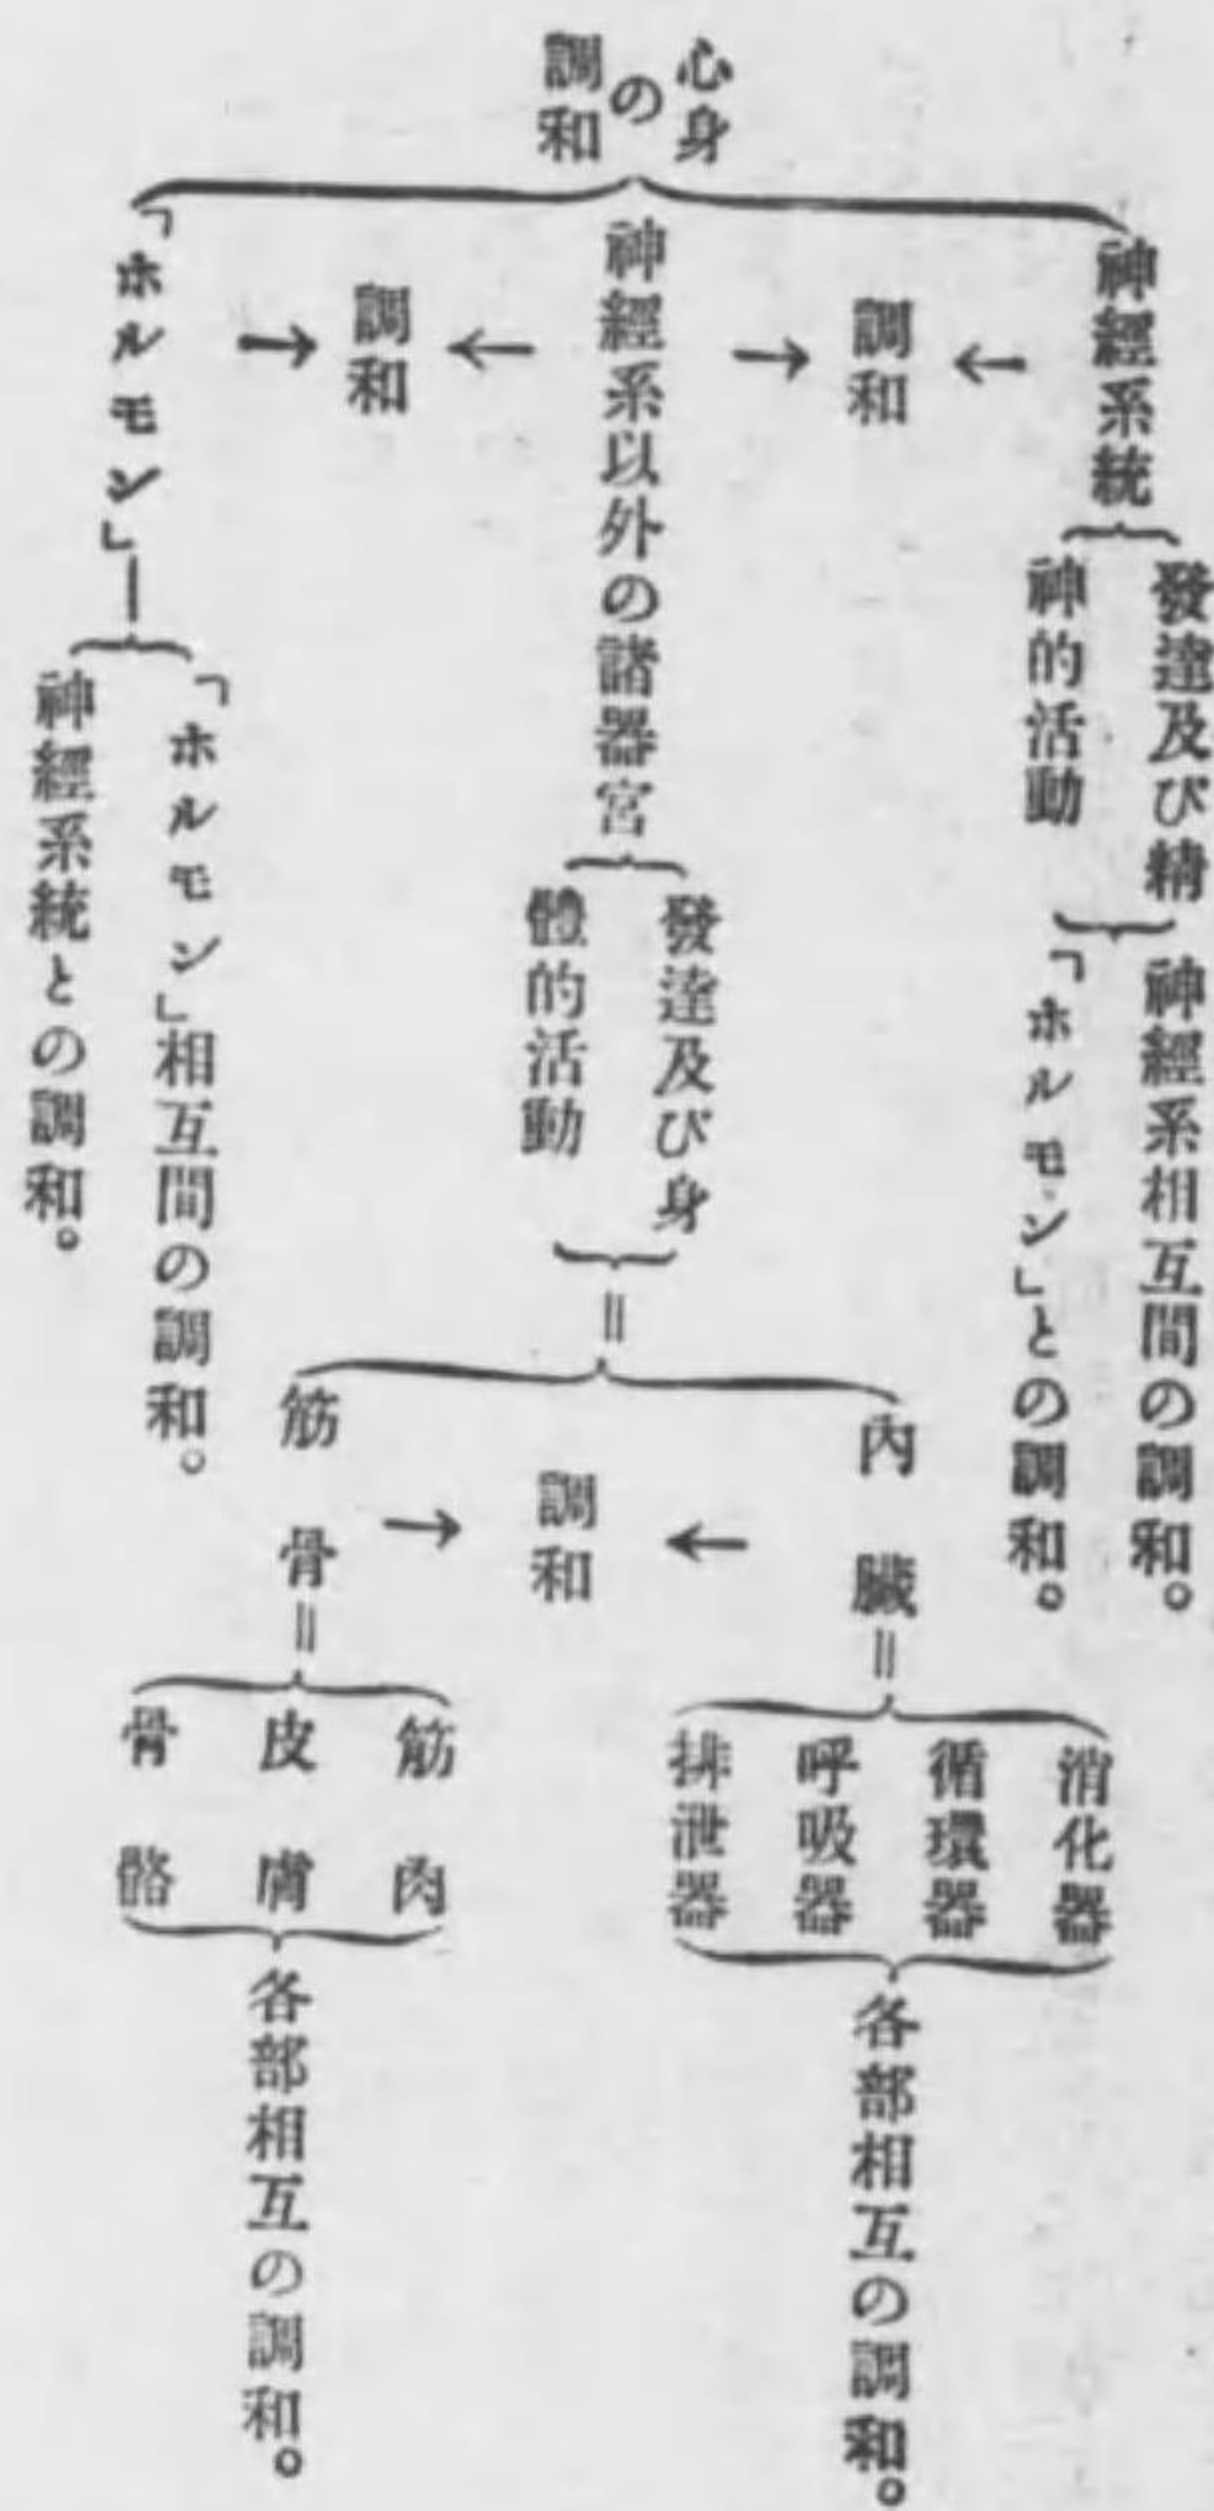 心身
の
調和
神經系統
發達及び精
神的活動
神經系相互間の調和。
「ホルモン」との調和。
調和
神經系以外の諸器宮
發達及び身
體的活動
內臟
消化器
循環器
呼吸器
排泄器
各部相互の調和。
調和
筋骨
筋肉
皮膚
骨骼
各部相互の調和。
調和
「ホルモン」
「ホルモン」相互間の調和。
神經系統との調和。